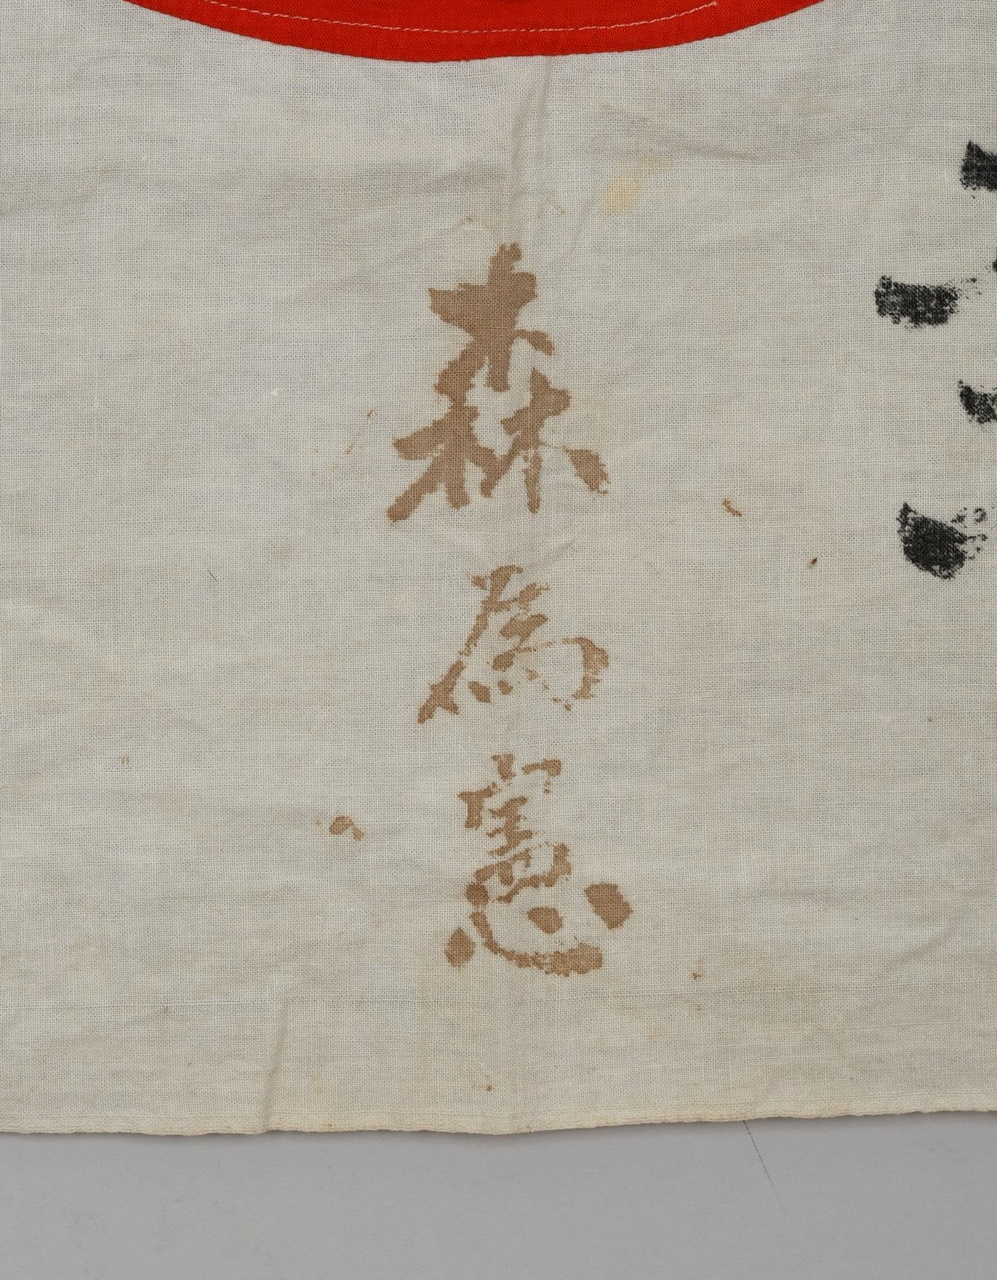 森為憲